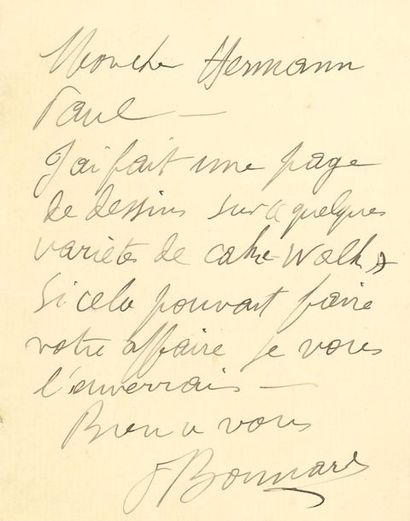 Mon cher Hermann
Paul —
J'ai fait une page
de dessins sur « quelques
variétés de cake-walk »
Si cela pouvait faire
votre affaire je vous
l'enverrais —
Bien à vous
PBonnard